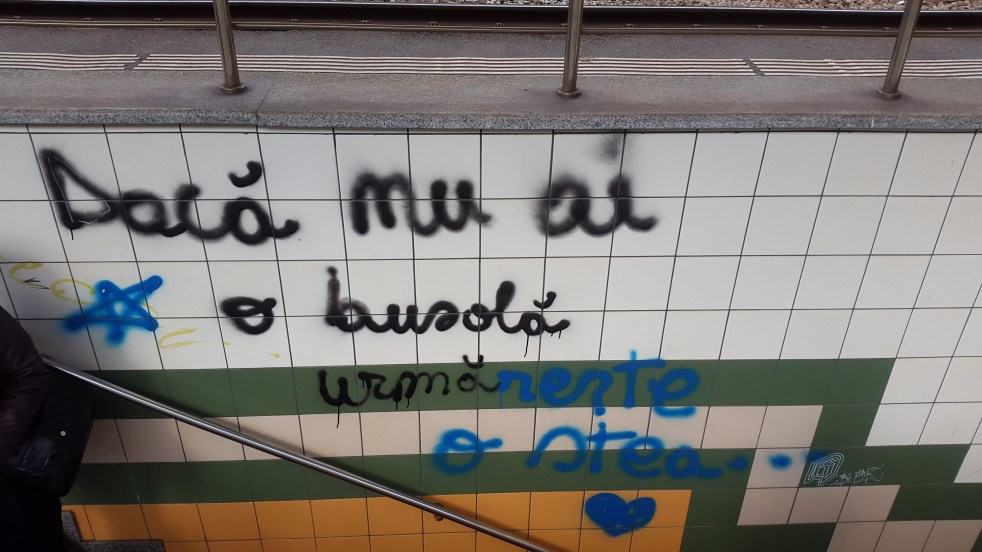 Dacă nu ai
o busolă
urmărește
o stea...